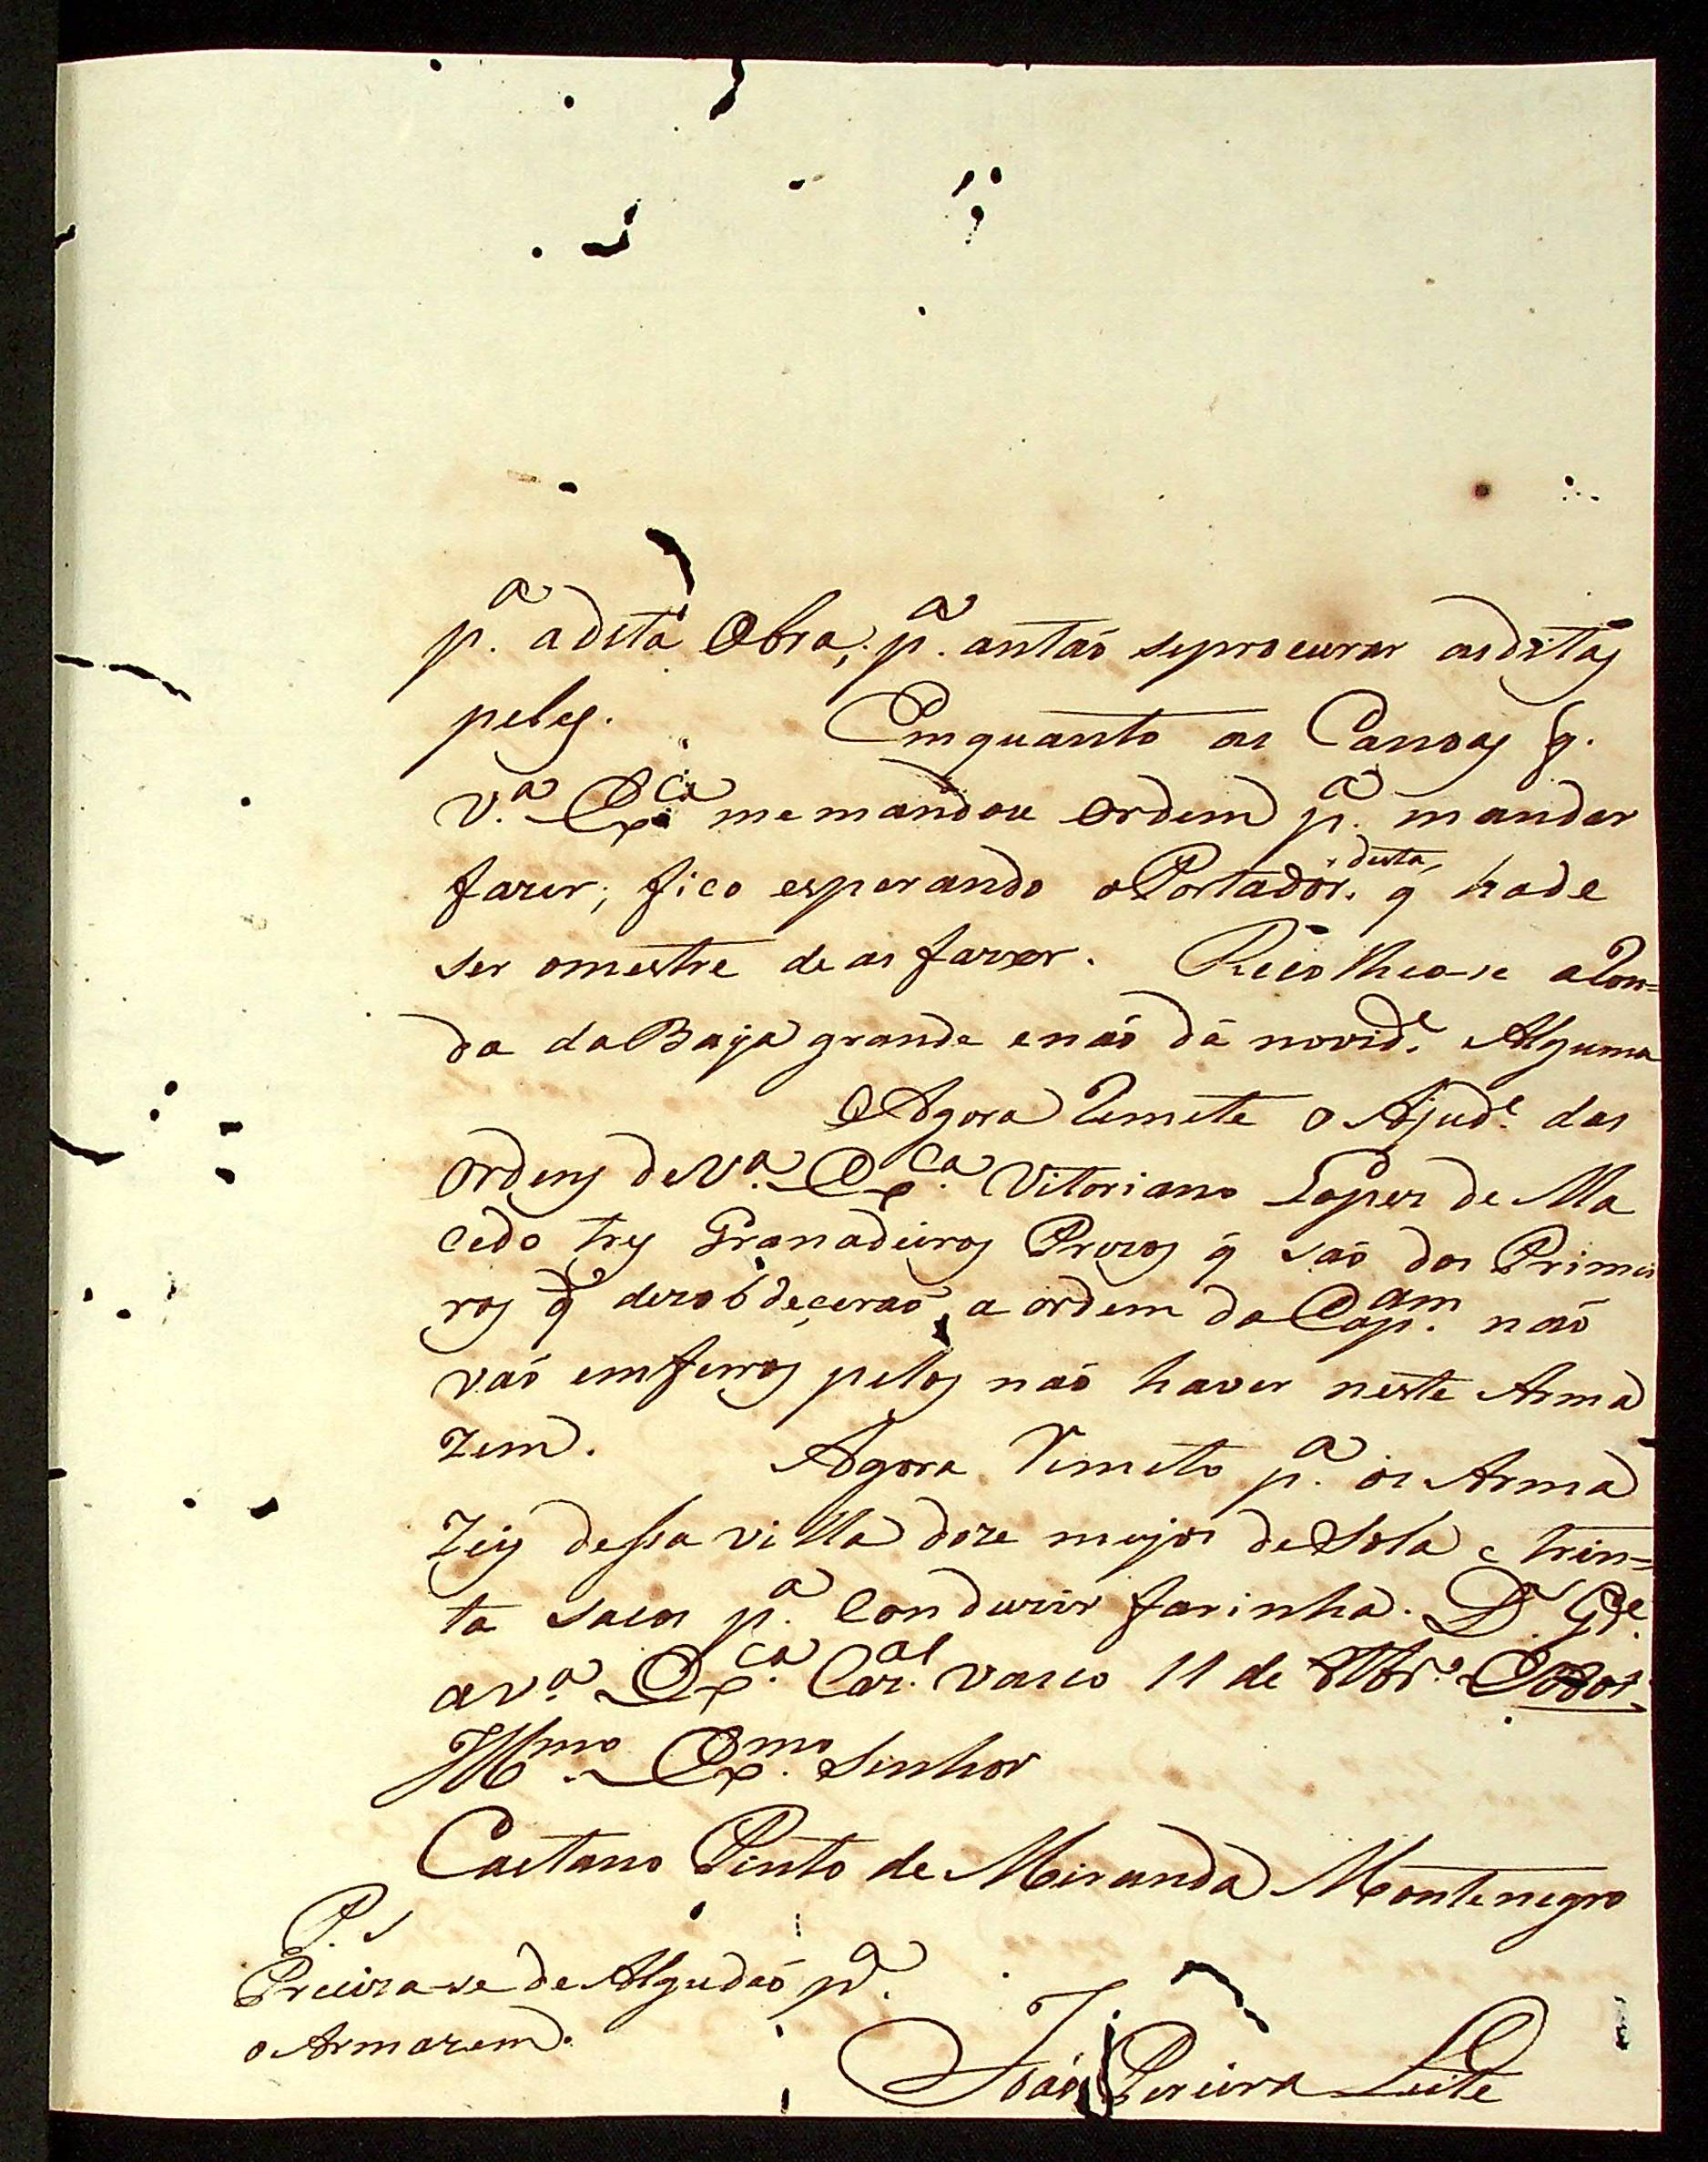 p.ª adita Obra; p.ª antaõ seprocurar asditas
peles. Emquanto as Canoas q.
V.ª Ex.ca memandou ordem p.ª mandar
fazer; fico esperando oPortador, desta, q hade
ser omestre de as fazer. Recolheo-se aRon=
da daBaya grande enaõ dá novid.e Alguma
Agora Remete o Ajud.e das
ordens deV.ª Ex.ca Vitoriano Lopes de Ma
cedo tres Granadeiros Prezos q̃ saõ dos Primei
ros q̃ dezobdeçeraõ, a ordem do Cap.am naõ
vaõ emferros pelos naõ haver neste Arma
zem. Agora Remeto p.ª os Arma
zeis dessa villa doze meyos deSola e trin=
ta sacos p.ª Conduzir farinha. D.s G.de
aV.ª Ex.ca Caz.al vasco 11 de 8br.o
Ill.mo Ex.mo Senhor
Caetano Pinto de Miranda Montenegro
P. S
Preciza-se de Algudaõ p.ª
o Armazem.
Joaõ Pereira Leite